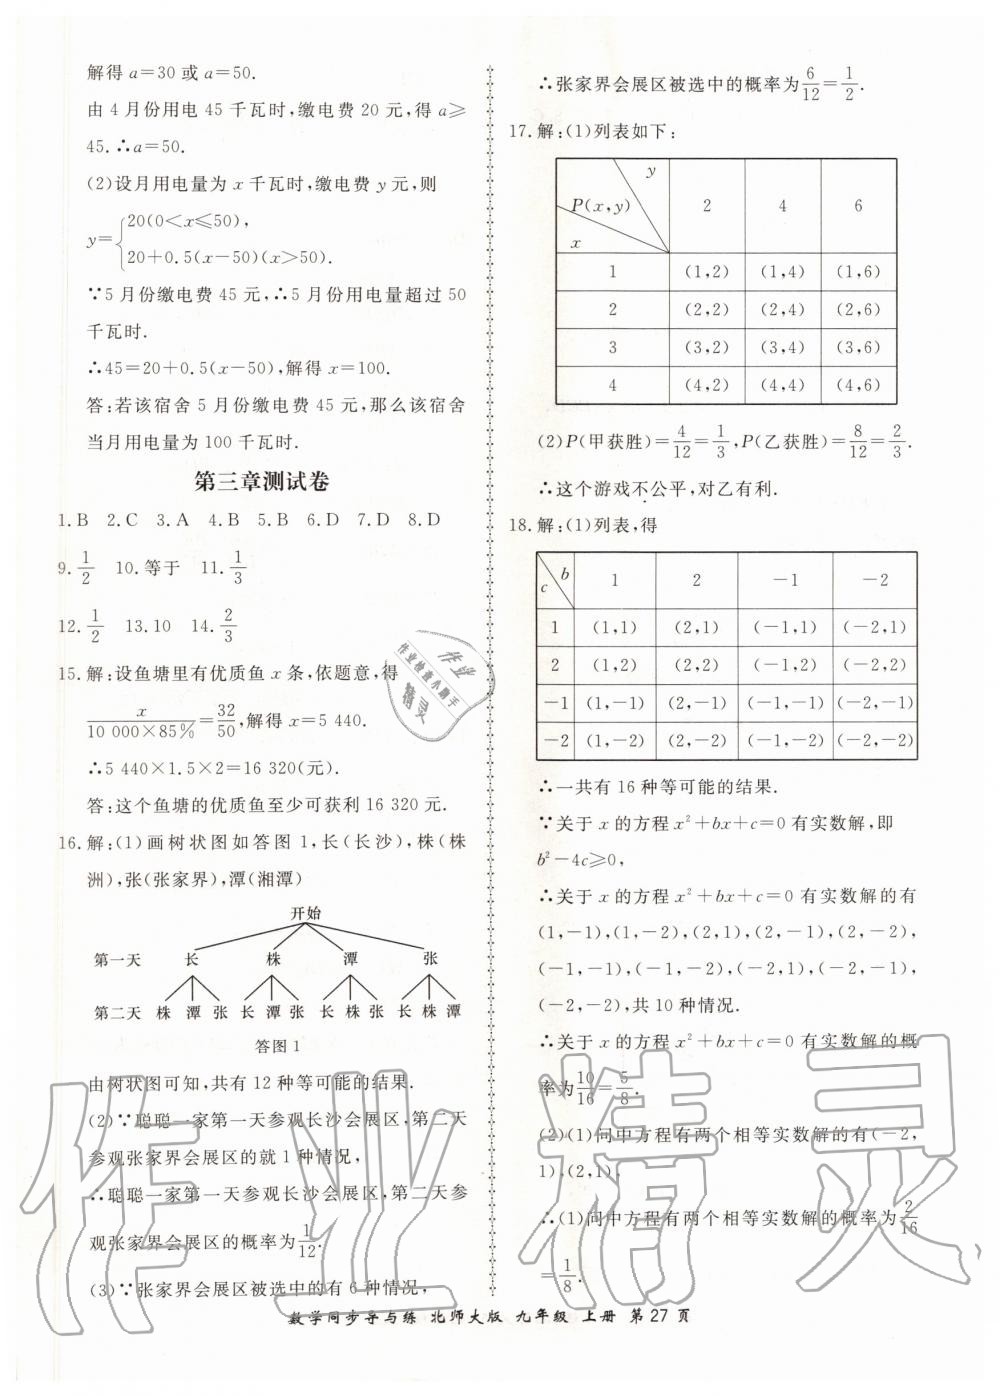 解得 a=30 或 a=50.
由 4 月份用电 45 千瓦时,缴电费 20 元,得 a≥
45.∴a=50.
(2)设月用电量为 x 千瓦时,缴电费 y 元,则
y={20(0<x≤50),
20+0.5(x-50)(x>50).
∵5 月份缴电费 45 元,∴5 月份用电量超过 50
千瓦时.
∴45=20+0.5(x-50),解得 x=100.
答:若该宿舍 5 月份缴电费 45 元,那么该宿舍
当月用电量为 100 千瓦时.
第三章测试卷
1.B 2.C 3.A 4.B 5.B 6.D 7.D 8.D
9. 1/2 10.等于 11. 1/3
12. 1/2 13.10 14. 2/3
15.解:设鱼塘里有优质鱼 x 条,依题意,得
x/(10 000×85%)=32/50,解得 x=5 440.
∴5 440×1.5×2=16 320(元).
答:这个鱼塘的优质鱼至少可获利 16 320 元.
16.解:(1)画树状图如答图 1,长(长沙),株(株
洲),张(张家界),潭(湘潭)
开始
第一天 长 株 潭 张
第二天 株 潭 张 长 潭 张 长 株 张 长 株 潭
答图 1
由树状图可知,共有 12 种等可能的结果.
(2)∵聪聪一家第一天参观长沙会展区,第二天
参观张家界会展区的就 1 种情况,
∴聪聪一家第一天参观长沙会展区,第二天参
观张家界会展区的概率为 1/12.
(3)∵张家界会展区被选中的有 6 种情况,
∴张家界会展区被选中的概率为 6/12=1/2.
17.解:(1)列表如下:
y
P(x,y) 2 4 6
x
1 (1,2) (1,4) (1,6)
2 (2,2) (2,4) (2,6)
3 (3,2) (3,4) (3,6)
4 (4,2) (4,4) (4,6)
(2)P(甲获胜)=4/12=1/3,P(乙获胜)=8/12=2/3.
∴这个游戏不公平,对乙有利.
18.解:(1)列表,得
c b 1 2 -1 -2
1 (1,1) (2,1) (-1,1) (-2,1)
2 (1,2) (2,2) (-1,2) (-2,2)
-1 (1,-1) (2,-1) (-1,-1) (-2,-1)
-2 (1,-2) (2,-2) (-1,-2) (-2,-2)
∴一共有 16 种等可能的结果.
∵关于 x 的方程 x²+bx+c=0 有实数解,即
b²-4c≥0,
∴关于 x 的方程 x²+bx+c=0 有实数解的有
(1,-1),(1,-2),(2,1),(2,-1),(2,-2),
(-1,-1),(-1,-2),(-2,1),(-2,-1),
(-2,-2),共 10 种情况.
∴关于 x 的方程 x²+bx+c=0 有实数解的概
率为 10/16=5/8.
(2)(1)问中方程有两个相等实数解的有(-2,
1),(2,1).
∴(1)问中方程有两个相等实数解的概率为 2/16
=1/8.
数学同步导与练 北师大版 九年级 上册 第 27 页
作业精灵
作业
作业检查小助手
精灵